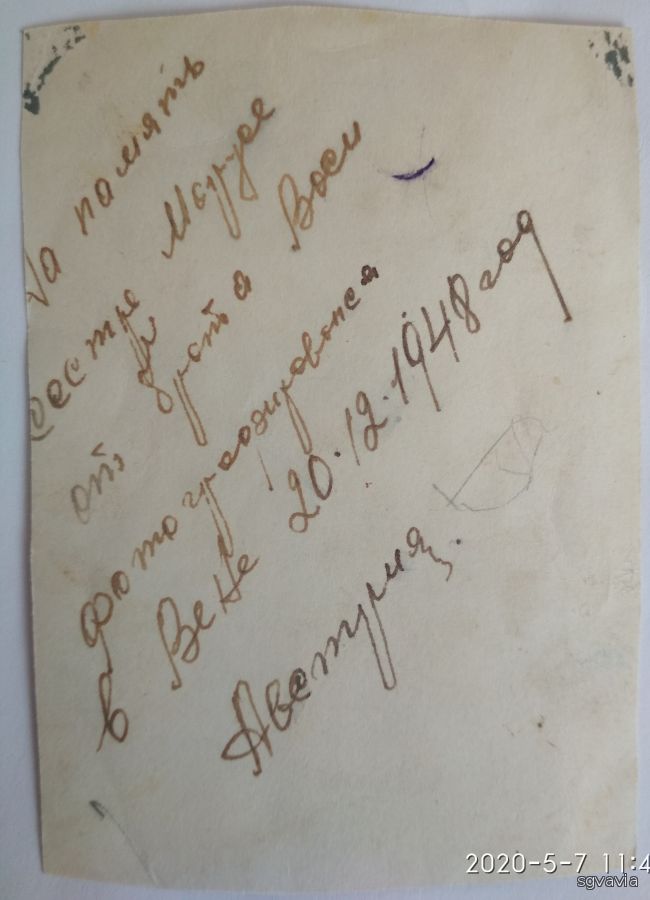 На память
сестре Марусе
от брата Васи
фотографировался
в Вене 20.12.1948 год
Австрия.
2020-5-7 11:4
sgvavia